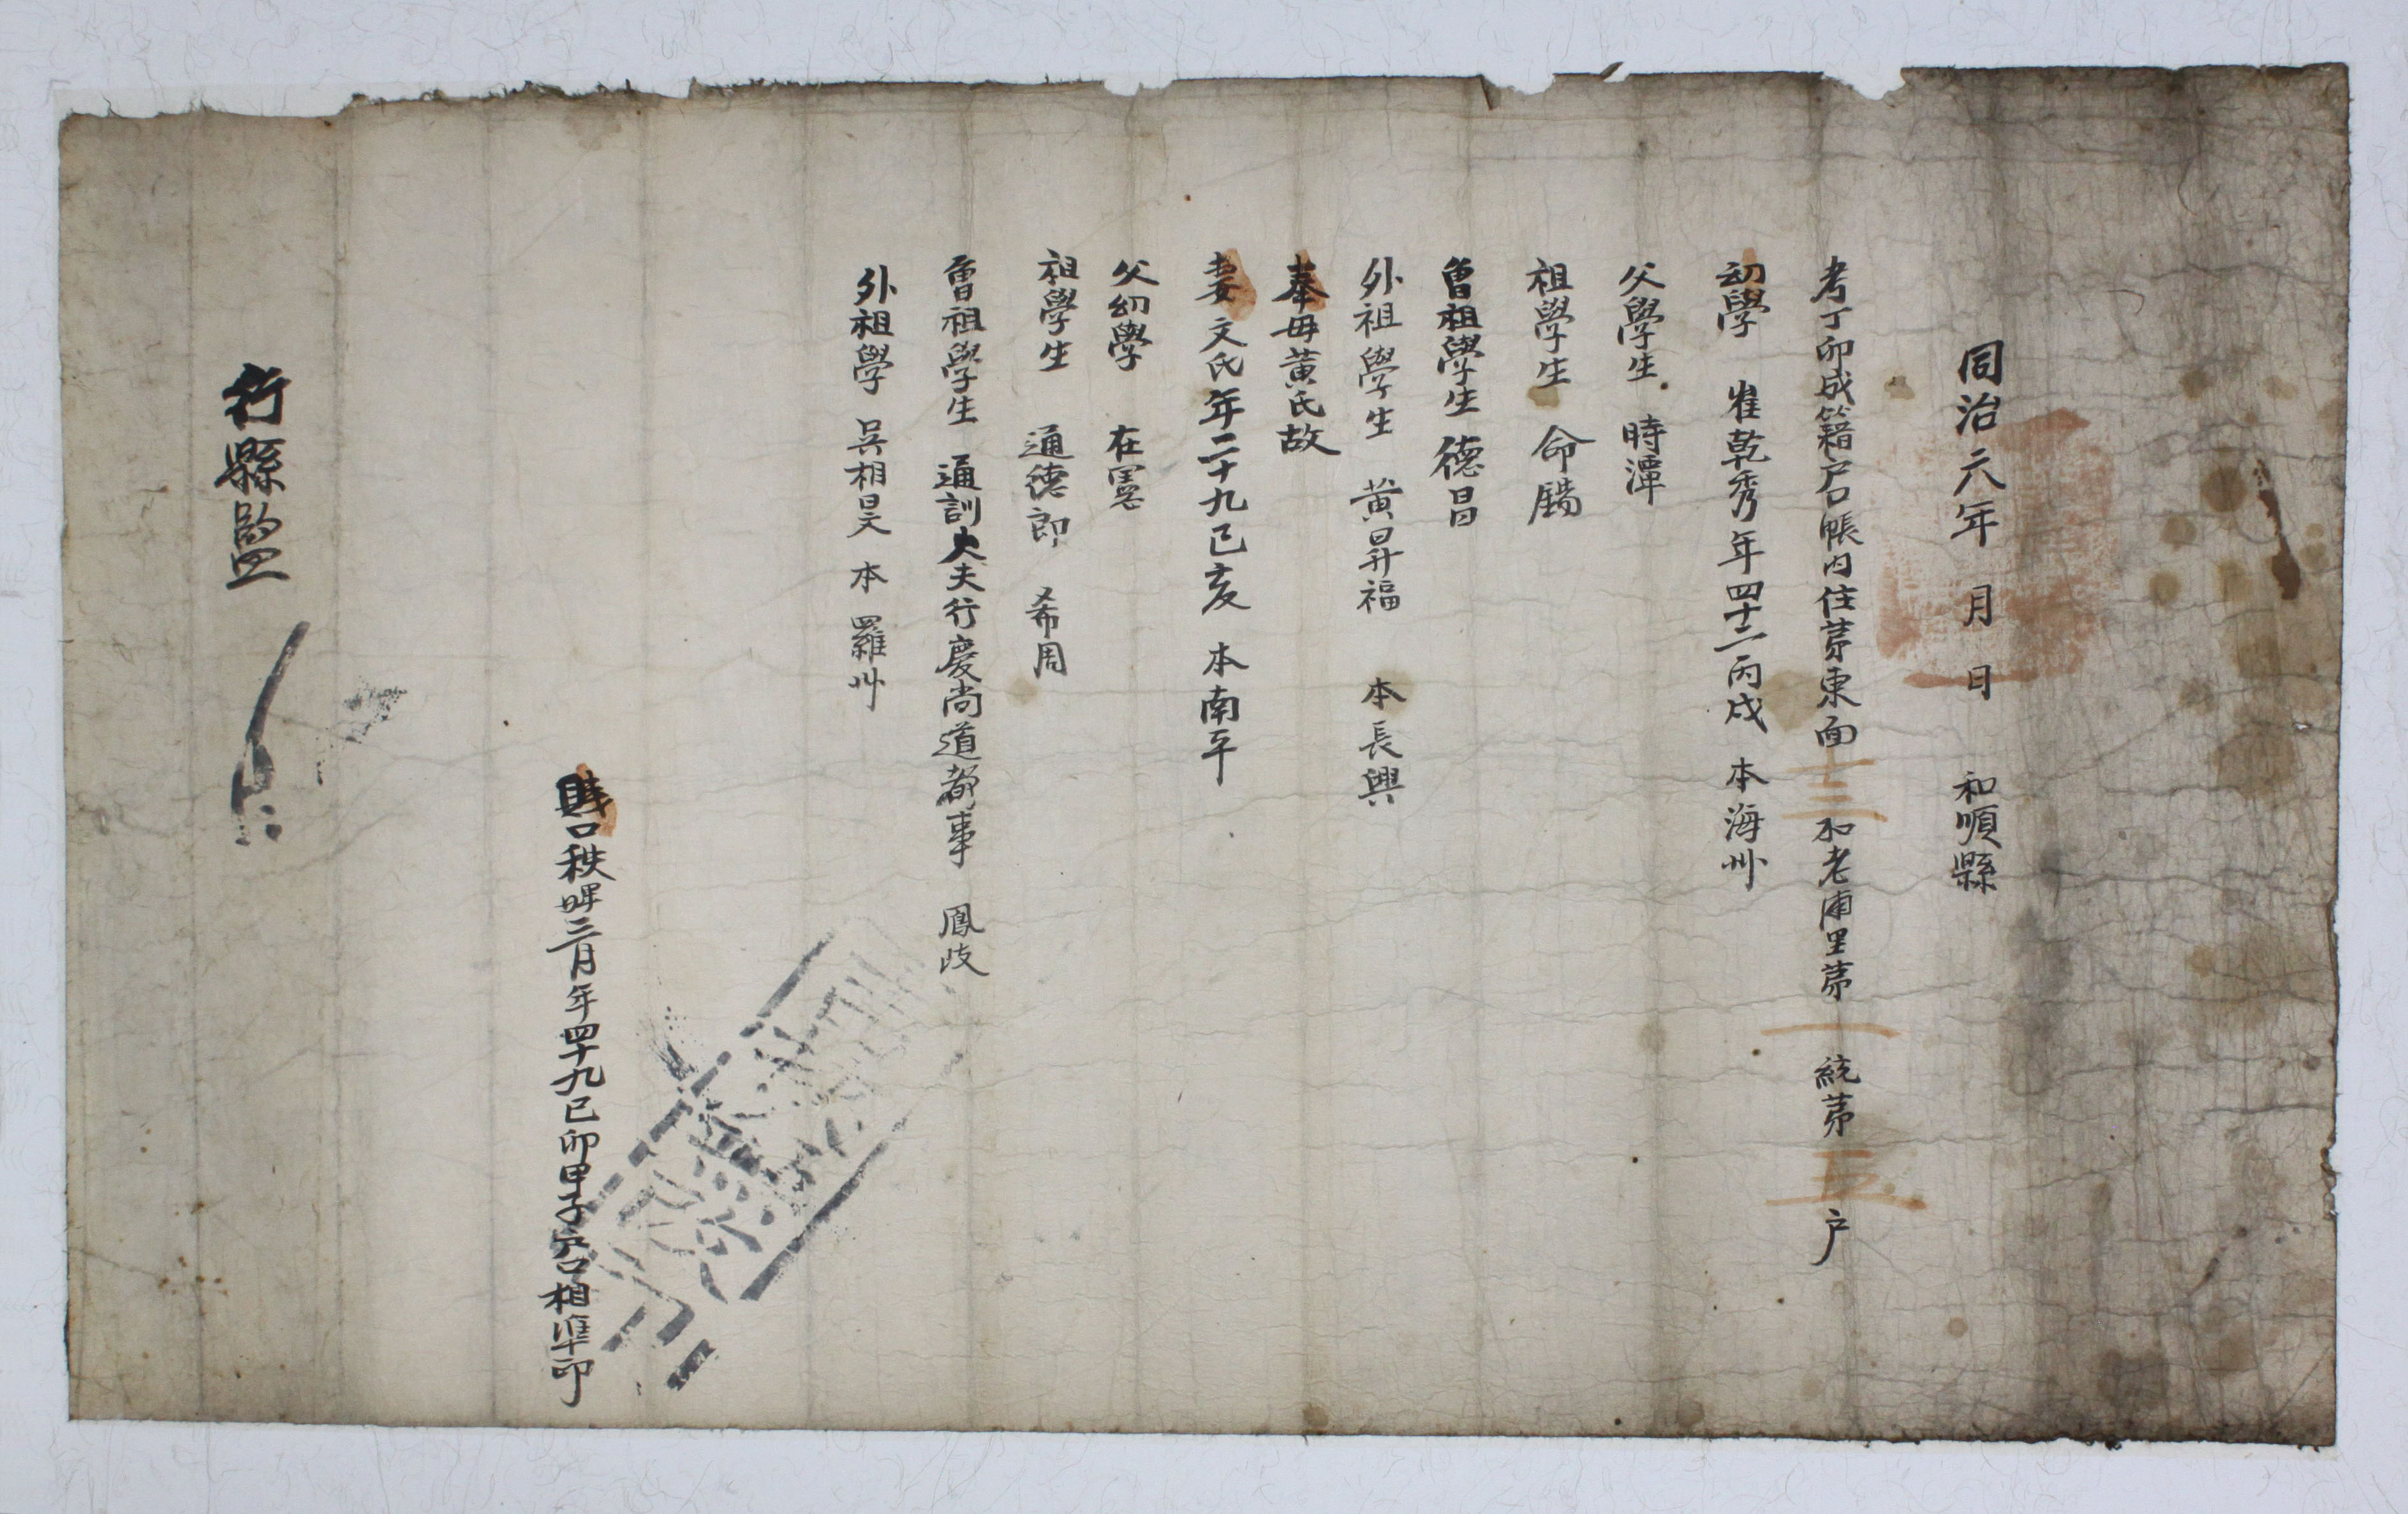 同治六年 月 日 和順縣
考丁卯成籍户口帳內住苐東面 三 和老浦里苐 一 統苐 五 户
幼學 崔乾秀年四十二丙戌 本海州
父學生 時潭
祖學生 命
曾祖學生 德昌
外祖學生 黃昇福 本長興
奉母黃氏故
妻文氏年二十九己亥 本南平
父幼學 在
祖學生 通德郎 希周
曾祖學生 通訓大夫行慶尚道都事 鳳歧
外祖學 吳相昊 本 羅州
賤口秩婢三月年四十九己卯甲子户口相準印
行縣監